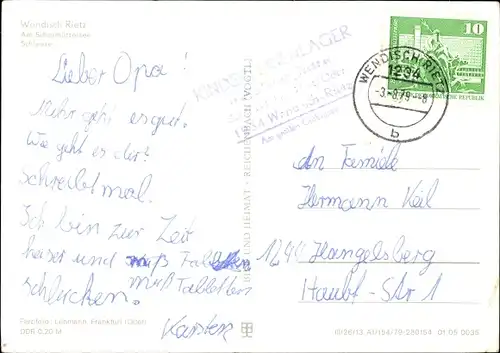 Wendisch Rietz
Am Scharmützelsee
Schleuse
Lieber Opa!
Mihr geht es gut.
Wie geht es dir?
Schreibt mal.
Ich bin zur Zeit
heiser und muß Tabletten
muß Tabletten
schlucken.
Karsten
Farbfoto: Lißmann, Frankfurt (Oder)
DDR 0,20 M
BILD UND HEIMAT · REICHENBACH (VOGTL)
KINDERFERIENLAGER
1234 Wendisch-Rietz
Am großen Glubigsee
10
WENDISCH RIETZ
1234
-3.-8.79-8
b
An Familie
Hermann Keil
1240 Hangelsberg
Haubt-Str 1
III/26/13 A1/154/79-280154 01 05 0035